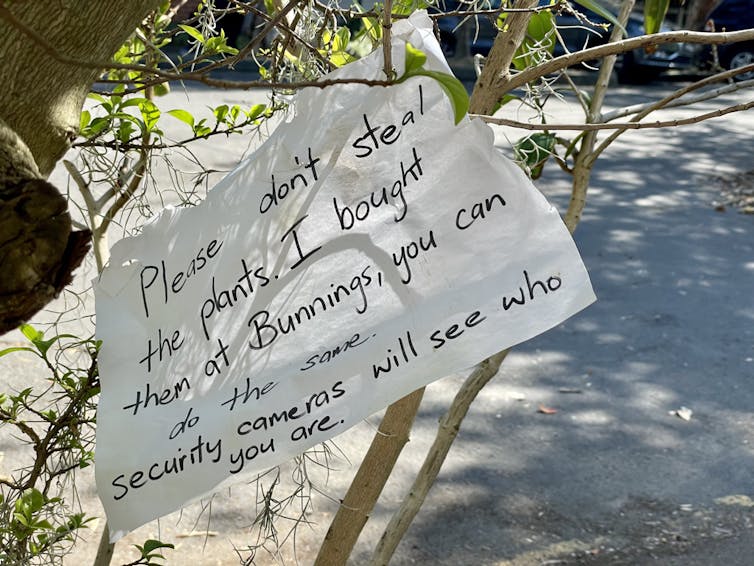 Please don't steal
the plants. I bought
them at Bunnings, you can
do the same.
security cameras will see who
you are.